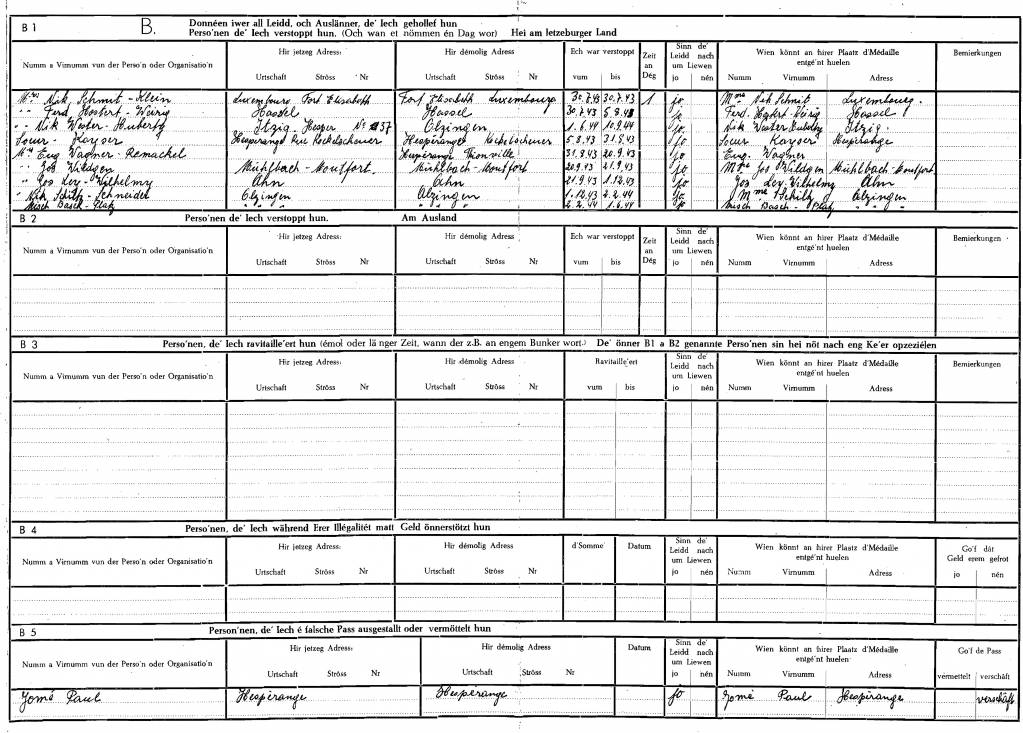 B 1 B. Donnéen iwer all Leidd, och Auslänner, de' Iech gehollef hun
Perso'nen de' Iech verstoppt hun. (Och wan et nömmen én Dag wor) Hei am letzeburger Land
Numm a Virnumm vun der Perso'n oder Organisatio'n
Hir jetzeg Adress:
Urtschaft Ströss Nr
Hir démolig Adress
Urtschaft Ströss Nr
Ech war verstoppt
vum bis
Zeit an Dég
Sinn de' Leidd nach um Liewen
jo nén
Wien könnt an hirer Plaatz d'Médaille entgé'nt huelen
Numm Virnumm Adress
Bemierkungen
Nik Schmit - Klein Luxembourg Fort Elisabeth Fort Elisabeth Luxembourg 30.7.43 30.7.43 1 jo Mme Nik Schmit Luxembourg.
Ferd. Hostert - Weirig Hassel Hassel 30.7.43 5.8.43 jo Ferd. Hostert-Weirig Hassel
Nik Wester - Hubertz Itzig - Hesper No 37 Alzingen 1.6.44 10.9.44 jo. Nik Wester Hubertz Itzig.
Soeur - Kayser Hespérange Rue Kockelscheuer Hespérange Kockelscheuer 5.8.43 31.8.43 jo Soeur Kayser Hespérange
Eug. Wagner - Remackel Hespérange Thionville 31.8.43 20.9.43 jo Eug. Wagner
Jos Wilzgen Mühlbach - Moutfort. Mühlbach - Moutfort 20.9.43 21.9.43 jo Mme Jos Wilzgen Mühlbach-Moutfort
Jos Ley - Wilhelmy Ahn Ahn 21.9.43 1.12.43 jo Jos Ley-Wilhelmy Ahn
Nik Schiltz - Schneider Alzingen Alzingen 1.12.43 2.2.44 jo. Mme Schiltz Alzingen
Basch - Platz " " " " " " 2.2.44 1.6.44 jo Basch - Platz " " "
B 2 Perso'nen de' Iech verstoppt hun. Am Ausland
Numm a Virnumm vun der Perso'n oder Organisatio'n
Hir jetzeg Adress:
Urtschaft Ströss Nr
Hir démolig Adress
Urtschaft Ströss Nr
Ech war verstoppt
vum bis
Zeit an Dég
Sinn de' Leidd nach um Liewen
jo nén
Wien könnt an hirer Plaatz d'Médaille entgé'nt huelen
Numm Virnumm Adress
Bemierkungen
B 3 Perso'nen, de' Iech ravitaille'ert hun (émol oder länger Zeit, wann der z.B. an engem Bunker wort.) De' önner B1 a B2 genannte Perso'nen sin hei nöt nach eng Ke'er opzeziélen
Numm a Virnumm vun der Perso'n oder Organisatio'n
Hir jetzeg Adress:
Urtschaft Ströss Nr
Hir démolig Adress
Urtschaft Ströss Nr
Ravitaille'ert
vum bis
Sinn de' Leidd nach um Liewen
jo nén
Wien könnt an hirer Plaatz d'Médaille entgé'nt huelen
Numm Virnumm Adress
Bemierkungen
B 4 Perso'nen, de' Iech während Erer Illégalitét matt Geld önnerstötzt hun
Numm a Virnumm vun der Perso'n oder Organisatio'n
Hir jetzeg Adress:
Urtschaft Ströss Nr
Hir démolig Adress
Urtschaft Ströss Nr
d'Somme
Datum
Sinn de' Leidd nach um Liewen
jo nén
Wien könnt an hirer Plaatz d'Médaille entgé'nt huelen
Numm Virnumm Adress
Go'f dát Geld erem gefrot
jo nén
B 5 Person'nen, de' Iech é falsche Pass ausgestallt oder vermöttelt hun
Numm a Virnumm vun der Perso'n oder Organisatio'n
Hir jetzeg Adress:
Urtschaft Ströss Nr
Hir démolig Adress
Urtschaft Ströss Nr
Datum
Sinn de' Leidd nach um Liewen
jo nén
Wien könnt an hirer Plaatz d'Médaille entgé'nt huelen
Numm Virnumm Adress
Go'f de Pass
vermettelt verschäft
Jomé Paul Hespérange Hespérange jo Jomé Paul Hespérange verschäft